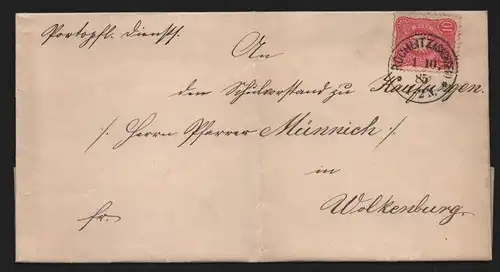 Portopfl. Dienstf.
An
den Schulvorstand zu Kaufungen.
/. Herrn Pfarrer Münnich /.
in
Wolkenburg.
fr.
10
1 10.
85